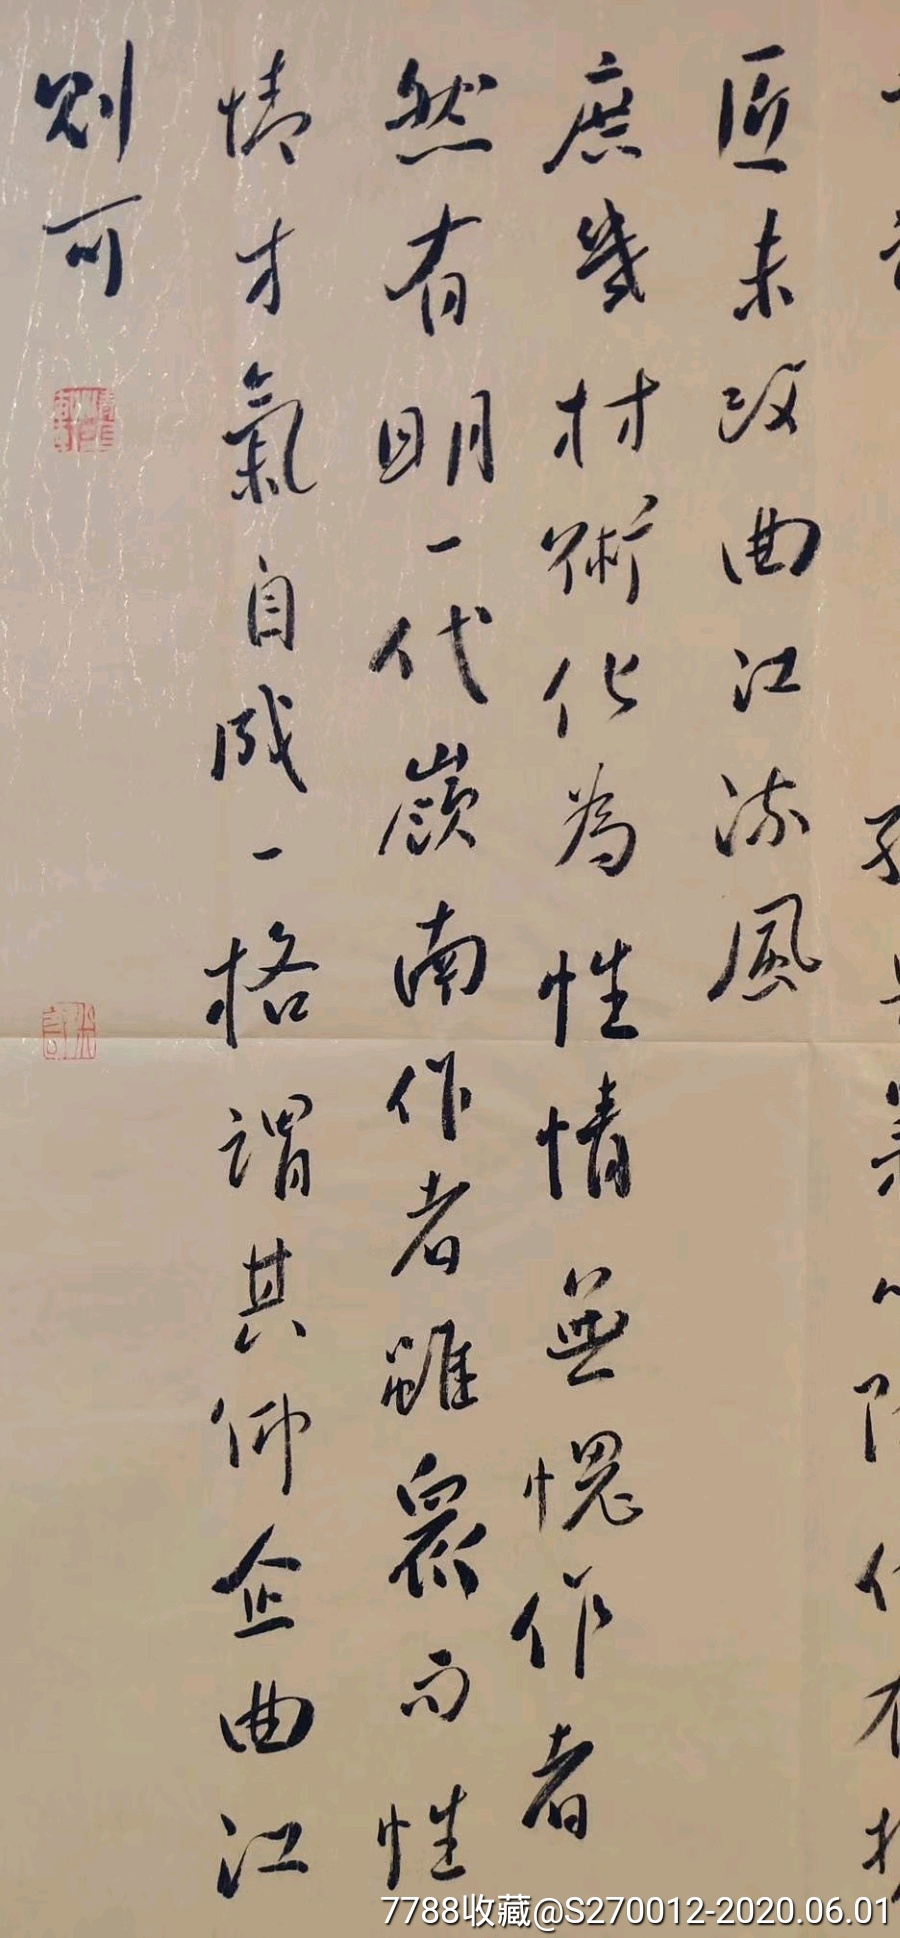 匠未改曲江流風
庶幾材術化為性情無愧作者
然有明一代嶺南作者雖眾而性
情才氣自成一格謂其仰企曲江
則可
7788收藏@S270012-2020.06.01